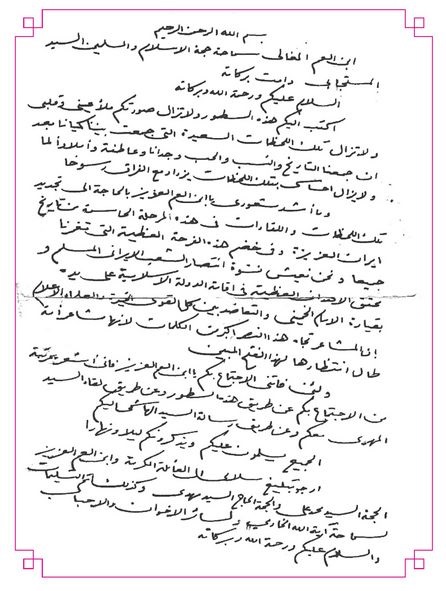 بسم الله الرحمن الرحيم
ابن العم المفدى سماحة حجة الاسلام والمسلمين السيد
المستجابي دامت بركاته
السلام عليكم ورحمة الله وبركاته
اكتب اليكم هذه السطور ولا تزال صورتكم ملأ عيني وقلبي
ولا تزال تلك اللحظات السعيدة التي جمعت بيننا كيانا بعد
ان جمعنا التاريخ والنسب والحب وجدانا وعاطفة وآمالا
ولا يزال احساسي بتلك اللحظات يزداد مع الفراق رسوخا
وما أشد شعوري يا ابن العم العزيز بالحاجة الى تجديد
تلك اللحظات واللقاءات في هذه المرحلة الحاسمة من تاريخ
ايران العزيزة وفي خضم هذه الفرحة العظيمة التي تغمرنا
جميعا ونحن نعيش نشوة انتصار الشعب الايراني المسلم و
تحقق الاهداف العظيمة في اقامة الدولة الاسلامية على يديه
بقيادة الامام الخميني والتعاضد بين كل القوى الخيرة والعلماء الاعلام
ان المشاعر تجاه هذا النصر اكبر من الكلمات لانها مشاعر أمة
طال انتظارها لهذا الفتح المبين
ولئن فاتني الاجتماع بكم يا ابن العم العزيز فاني أشعر بمرتبة
من الاجتماع بكم عن طريق هذه السطور وعن طريق لقاء السيد
المهدي معكم وعن طريق رسالة السيد اليكم
الجميع يسلمون عليكم ويذكرونكم ليلا ونهارا
ارجو تبليغ سلامي الى العائلة الكريمة وابن العم العزيز
الحجة السيد علي والحجة الحاج السيد مهدي وكذلك
لسماحة آية الله ولسائر الاخوان والاحباب
والسلام عليكم ورحمة الله وبركاته